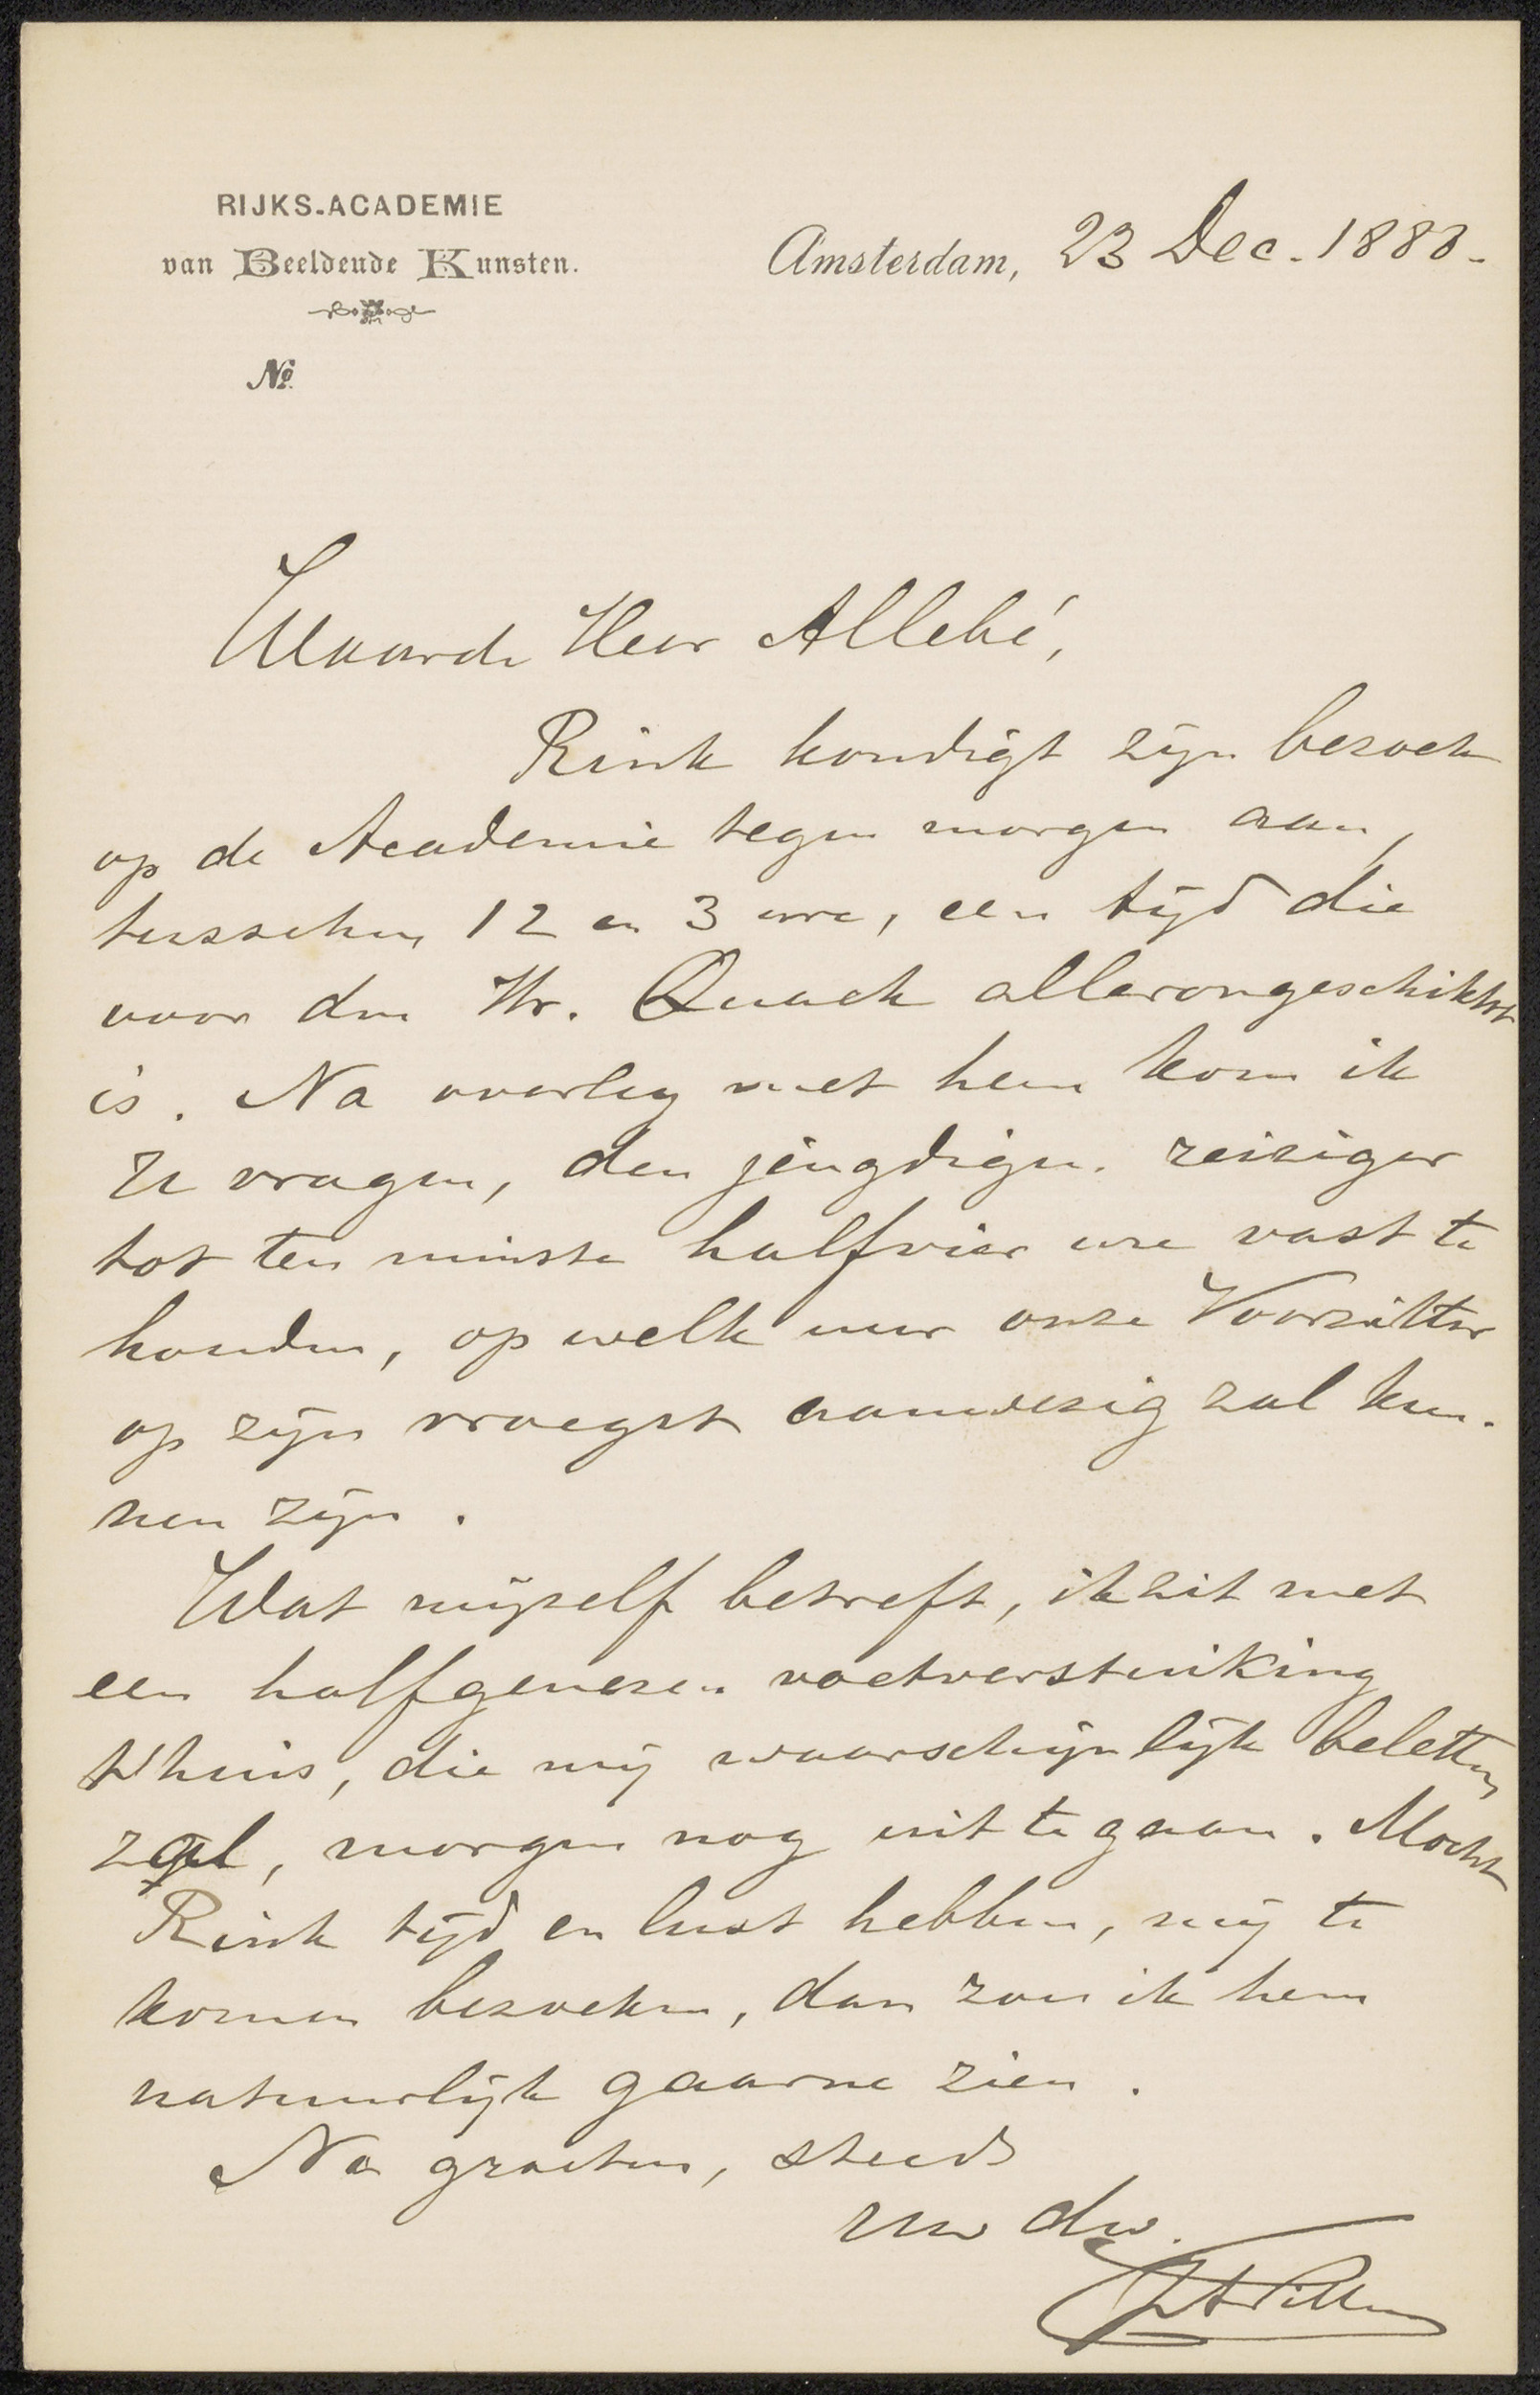 RIJKS-ACADEMIE
van Beeldende Kunsten.
No.
Amsterdam, 23 Dec. 1888.
Waarde Heer Allebé,
Rink kondigt zijn bezoek
op de Academie tegen morgen aan,
tusschen 12 en 3 ure, een tijd die
voor den Hr. Quack allerongeschiktst
is. Na overleg met hem kom ik
U vragen, den jeugdigen reiziger
tot ten minste halfvier ure vast te
houden, op welk uur onze Voorzitter
op zijn vroegst aanwezig zal kun-
nen zijn.
Wat mijzelf betreft, ik zit met
een halfgenezen voetverstuiking
t'huis, die mij waarschijnlijk beletten
zal, morgen nog uit te gaan. Mocht
Rink tijd en lust hebben, mij te
komen bezoeken, dan zou ik hem
natuurlijk gaarne zien.
Na groeten, steeds
Uw dw.